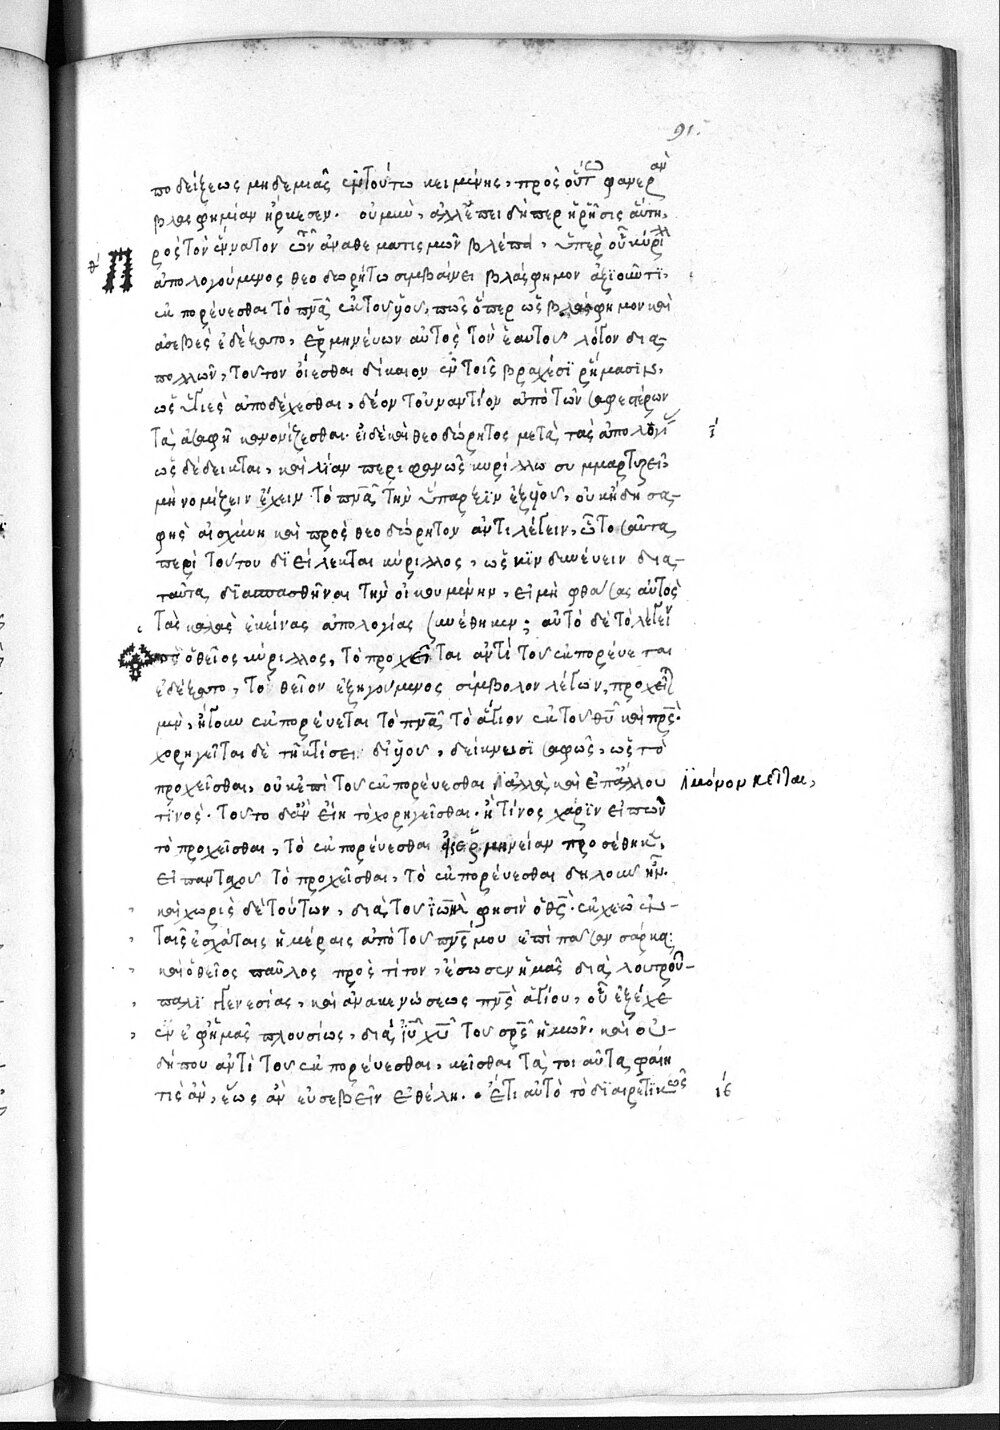 91.
ποδείξεως μηδεμιᾶς ἐν τούτω κειμένης, πρὸς οὕτω φανερὰν
βλασφημίαν ἤρκεσεν. οὐ μὴν, ἀλλ' ἐπειδήπερ ἡ ῥῆσις αὕτη,
πρὸς τὸν ἔννατον τῶν ἀναθεματισμῶν βλέπει, ὑπὲρ οὗ κύριλλ
θ'
ἀπολογούμενος θεοδωρήτω συμβαίνει βλάσφημον ἀξιοῦντι,
ἐκπορεύεσθαι τὸ πνᾶ ἐκ τοῦ υἱοῦ, πῶς ὅπερ ὡς βλάσφημον καὶ
ἀσεβὲς ἐδέξατο, ἑρμηνεύων αὐτὸς τὸν ἑαυτοῦ λόγον δια
πολλῶν, τοῦτον οἴεσθαι δίκαιον ἐν τοῖς βραχέσι ῥήμασιν,
ὡς ὑγιὲς ἀποδέχεσθαι, δέον τοὐναντίον ἀπὸ τῶν σαφεστέρων
τὰ ἀσαφῆ κανονίζεσθαι. εἰ δὲ καὶ θεοδώρητος μετὰ τὰς ἀπολογί
ι'
ὡς δέδεικται, καὶ λίαν περιφανῶς κυρίλλω συμμαρτυρεῖ,
μὴ νομίζειν ἔχειν τὸ πνᾶ τὴν ὕπαρξιν ἐξ υἱοῦ, οὐκ ἤδη σα-
φὴς αἰσχύνη καὶ πρὸς θεοδώρητον ἀντιλέγειν, ὧ τοσαῦτα
περὶ τούτου διείλεκται κύριλλος, ὡς κινδυνεύειν δια-
ταῦτα διασπασθῆναι τὴν οἰκουμένην, εἰ μὴ φθάσας αὐτὸς
τὰς καλὰς ἐκείνας ἀπολογίας συνέθηκεν; αὐτὸ δὲ τὸ λέγειν
ὡς ὁ θεῖος κύριλλος, τὸ προχεῖται ἀντὶ τοῦ ἐκπορεύεται
ἐδέξατο, τὸ θεῖον ἐξηγούμενος σύμβολον λέγων, προχεῖται
μὲν, ἤγουν ἐκπορεύεται τὸ πνᾶ τὸ ἅγιον ἐκ τοῦ θῦ καὶ πρς.
χορηγεῖται δὲ τῆ κτίσει δι' υἱοῦ, δείκνυσι σαφῶς, ὡς τὸ
προχεῖσθαι, οὐκ ἐπὶ τοῦ ἐκπορεύεσθαι ἀλλὰ καὶ ἐπ' ἄλλου
μόνον κεῖται,
τινός. τοῦτο δ' ἂν εἴη τὸ χορηγεῖσθαι. ἢ τίνος χάριν εἰπὼν
τὸ προχεῖσθαι, τὸ ἐκπορεύεσθαι ἑρμηνείαν προσέθηκεν,
εἰ πανταχοῦ τὸ προχεῖσθαι, τὸ ἐκπορεύεσθαι δηλοῦν ἦν.
καὶ χωρὶς δὲ τούτων, διὰ τοῦ ἰωὴλ φησὶν ὁ θς. ἐκχεῶ ἐν
ταῖς ἐσχάταις ἡμέραις ἀπὸ τοῦ πνς μου ἐπὶ πᾶσαν σάρκα.
καὶ ὁ θεῖος παῦλος πρὸς τίτον, ἔσωσεν ἡμᾶς διὰ λουτροῦ
παλιγγενεσίας, καὶ ἀνακενώσεως πνς ἁγίου, οὗ ἐξέχε
εν ἐφ' ἡμᾶς πλουσίως, διὰ ἰῦ χῦ τοῦ σρς ἡμῶν. καὶ οὐ-
δήπου ἀντὶ τοῦ ἐκπορεύεσθαι, κεῖσθαι τὰ τοιαῦτα φαίη
τις ἂν, ἕως ἂν εὐσεβεῖν ἐθέλη. ἔτι αὐτὸ τὸ διαιρετικῶς
ις'